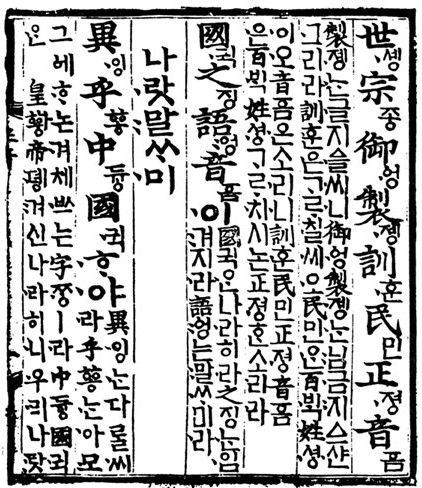 世솅宗조ᇰ御ᅌᅥᆼ製졩訓훈民민正져ᇰ音ᅙᅳᆷ
製졩ᄂᆞᆫ글지ᅀᅳᆯ씨니御ᅌᅥᆼ製졩ᄂᆞᆫ님금지ᅀᅳ샨
그리라訓훈은ᄀᆞᄅᆞ칠씨오民민ᄋᆞᆫ百ᄇᆡᆨ姓셔ᇰ
이오音ᅙᅳᆷ은소리니訓훈民민正져ᇰ音ᅙᅳᆷ
은百ᄇᆡᆨ姓셔ᇰᄀᆞᄅᆞ치시논正져ᇰᄒᆞᆫ소리라
國귁之징語ᅌᅥᆼ音ᅙᅳᆷ이
國귁ᄋᆞᆫ나라히라之징ᄂᆞᆫ입
겨지라語ᅌᅥᆼ는말ᄊᆞ미라
나랏말ᄊᆞ미
異잉乎ᅘᅩᆼ中듀ᇰ國귁ᄒᆞ야
異잉ᄂᆞᆫ다ᄅᆞᆯ씨
라乎ᅘᅩᆼᄂᆞᆫ아모
그ᅌᅦᄒᆞ논겨체ᄡᅳ는字ᄍᆞᆼㅣ라中듀ᇰ國귁
ᄋᆞᆫ皇ᅘᅪᇰ帝뎽겨신나라히니우리나랏